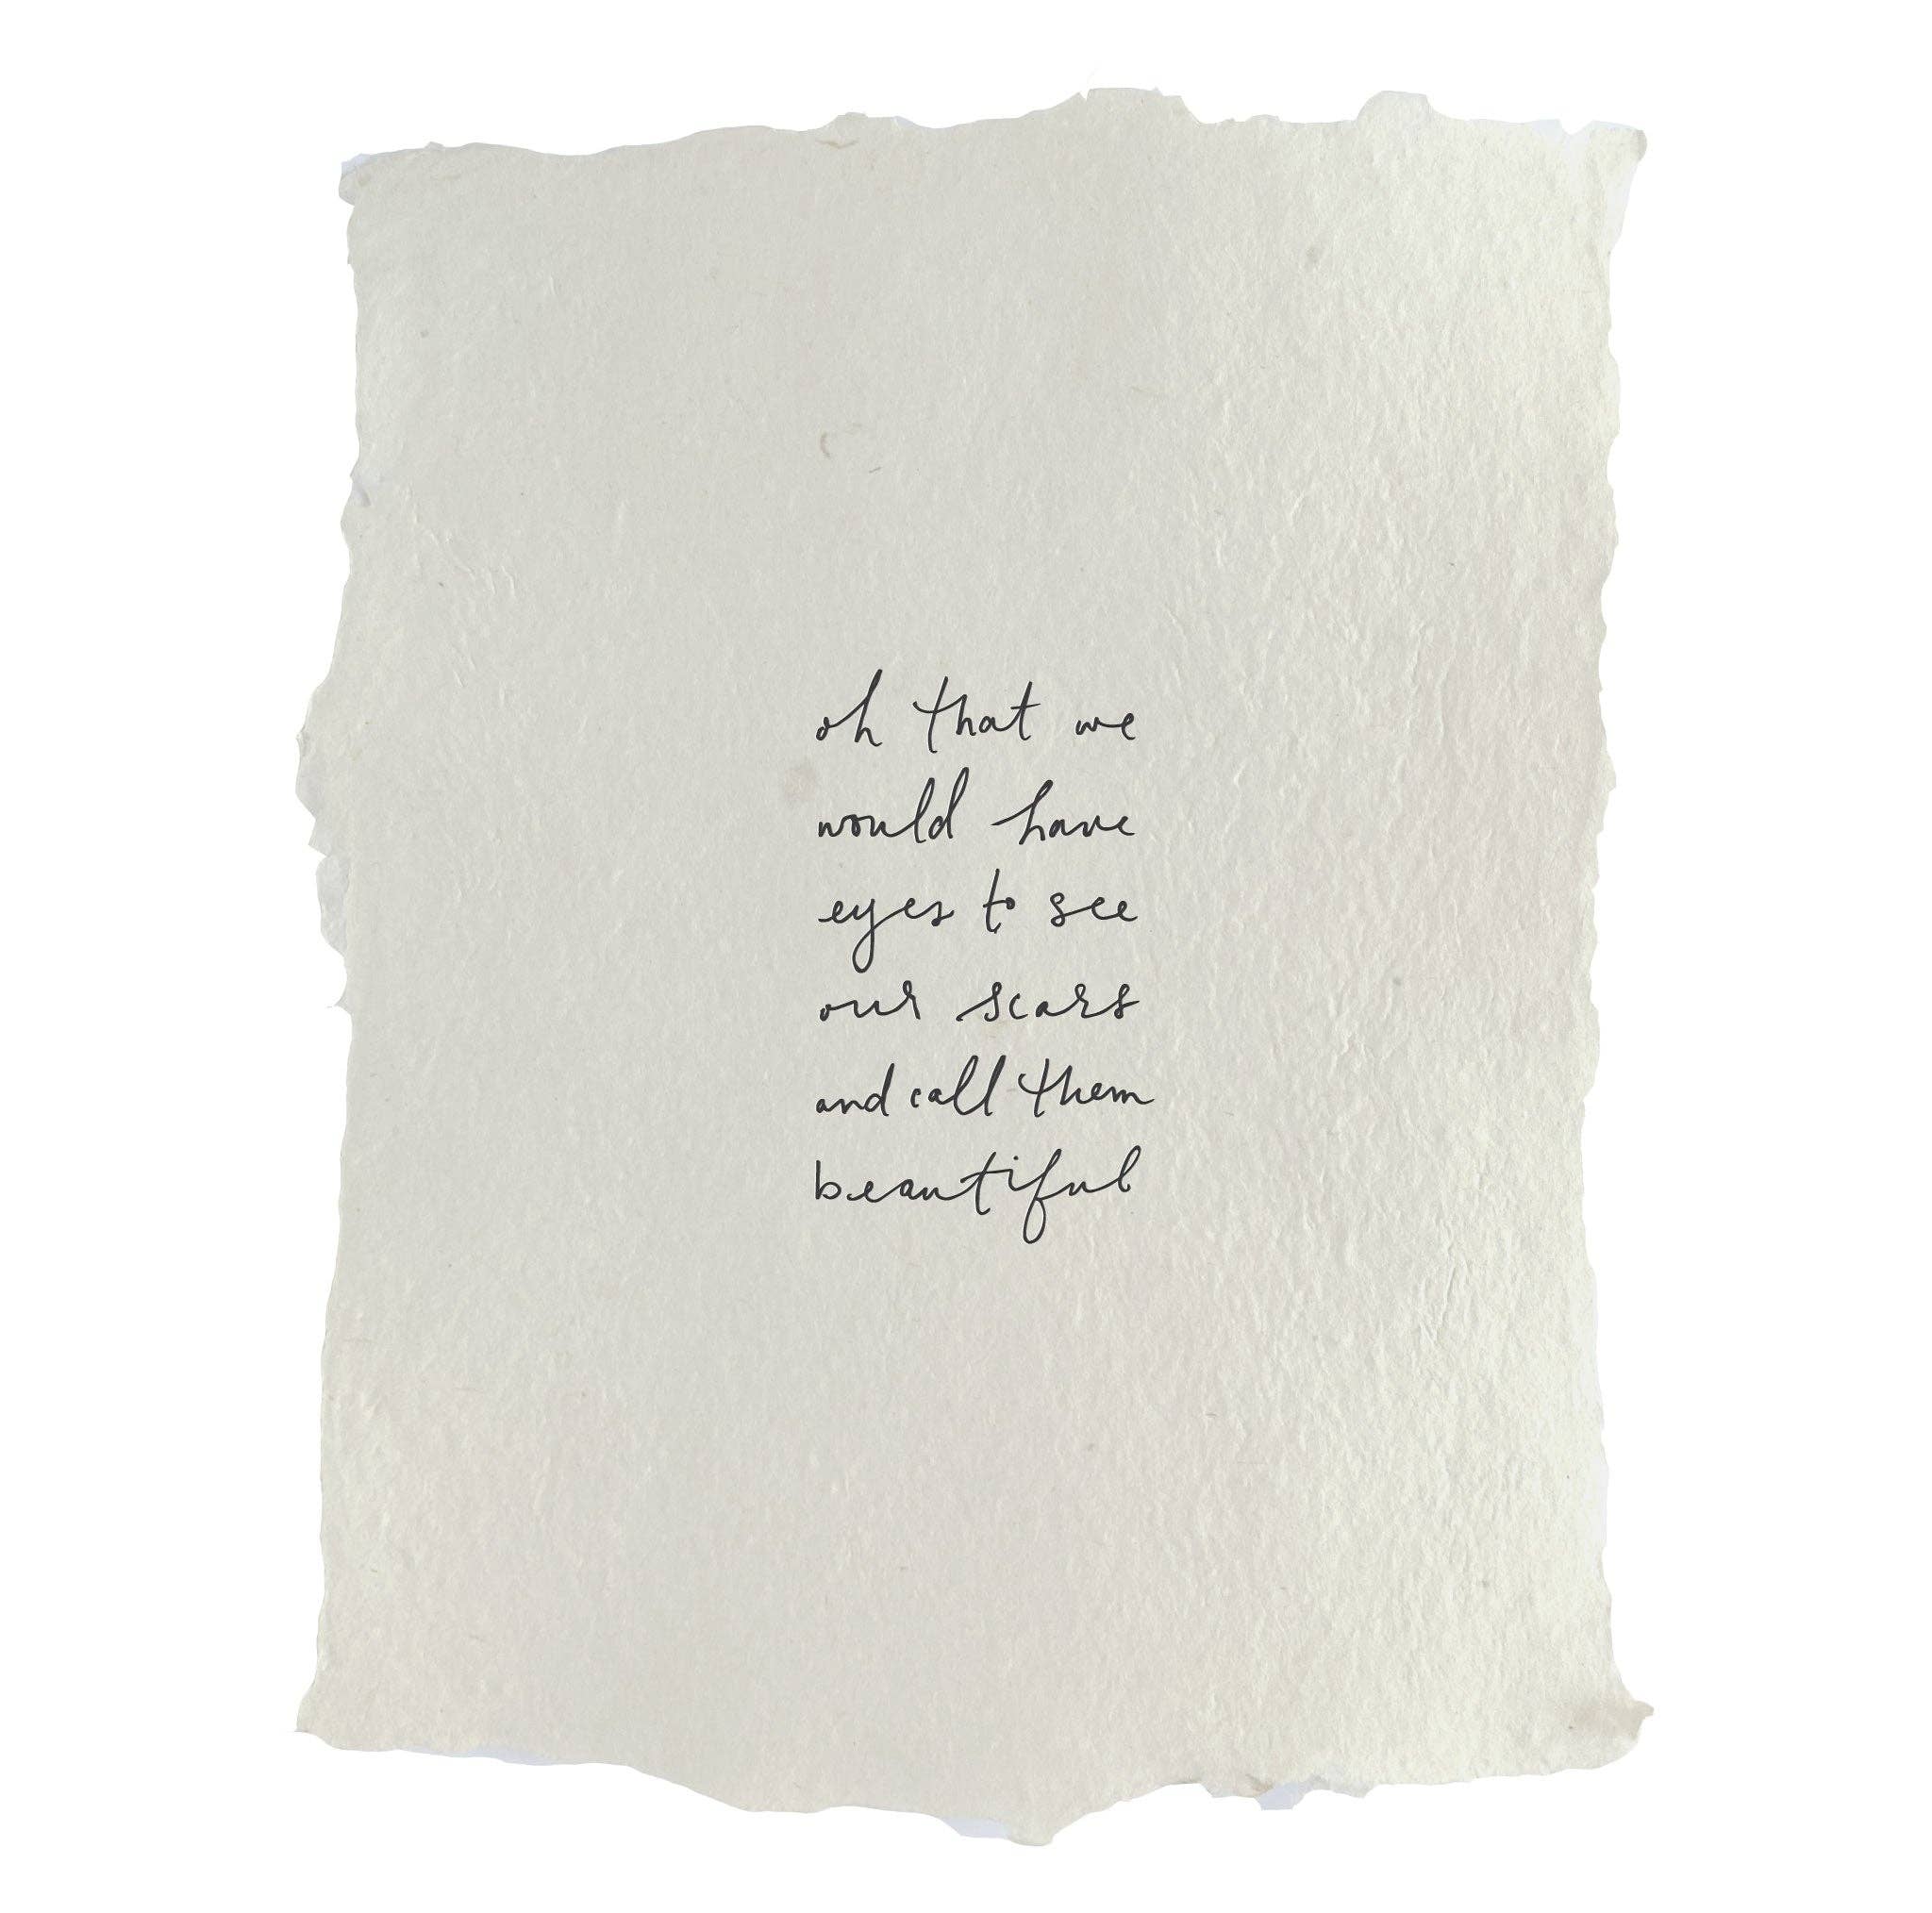 oh that we
would have
eyes to see
our scars
and call them
beautiful